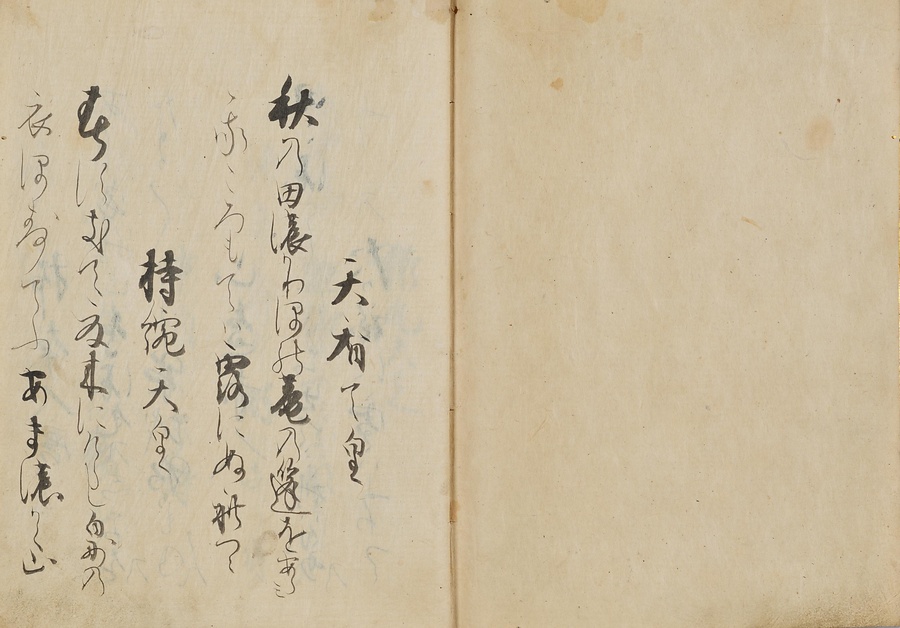 天智天皇
秋の田濃かりほ能庵の篷をあらみ
我ころもては露にぬれつつ
持統天皇
春須き天夏来にけらし白妙の
衣ほすてふあま濃かく山